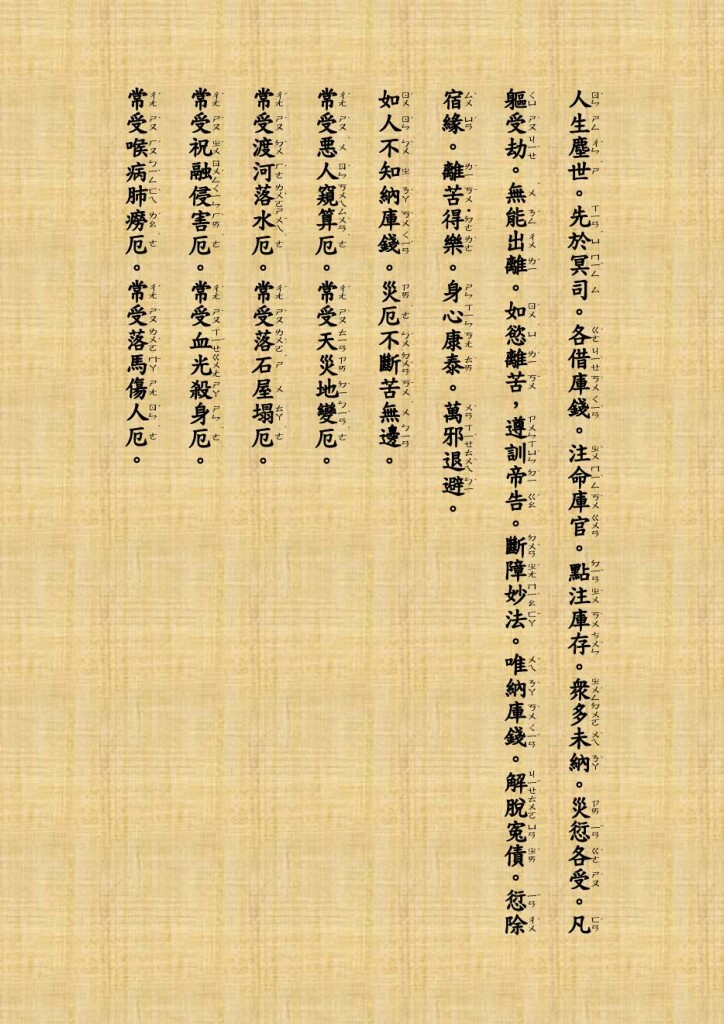 人生塵世。先於冥司。各借庫錢。注命庫官。點注庫存。衆多未納。災愆各受。凡
軀受劫。無能出離。如慾離苦，遵訓帝告。斷障妙法。唯納庫錢。解脫寃債。愆除
宿緣。離苦得樂。身心康泰。萬邪退避。
如人不知納庫錢。災厄不斷苦無邊。
常受惡人窺算厄。常受天災地變厄。
常受渡河落水厄。常受落石屋塌厄。
常受祝融侵害厄。常受血光殺身厄。
常受喉病肺癆厄。常受落馬傷人厄。